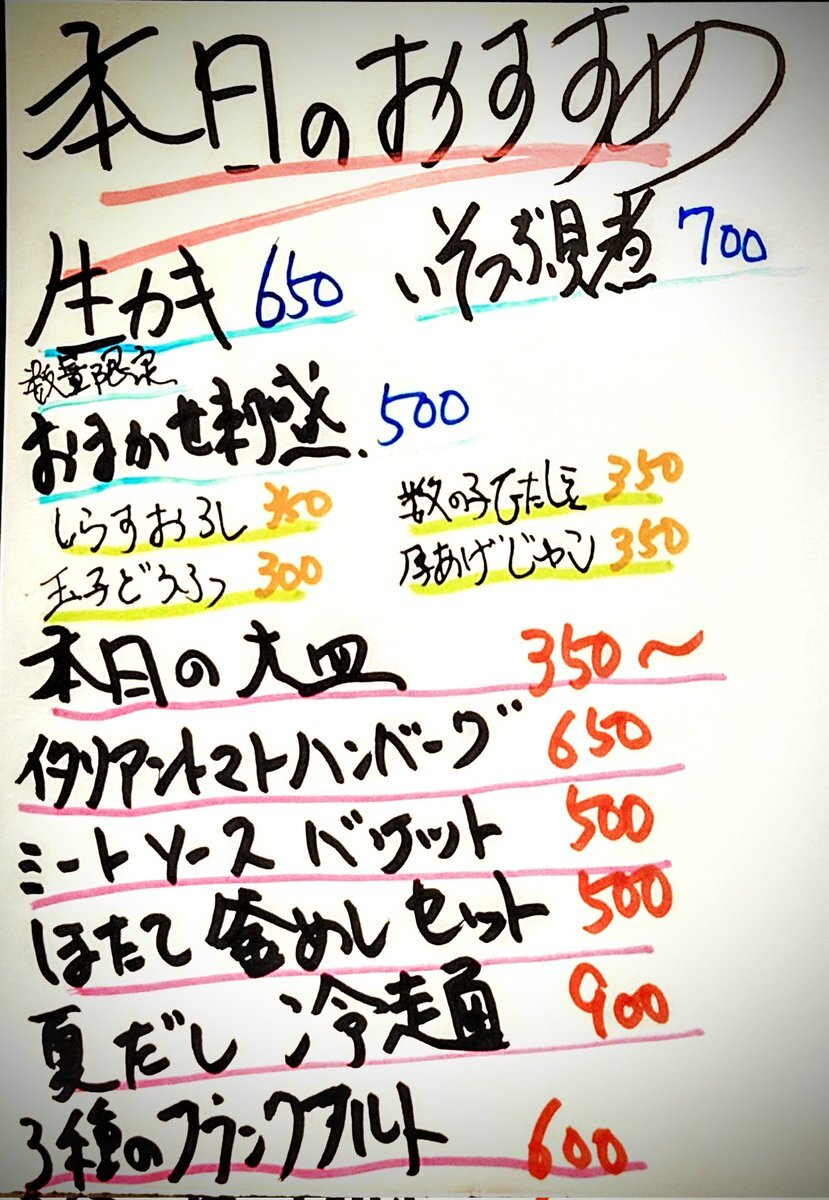 本日のおすすめ
生カキ 650 いそつぶ貝煮 700
数量限定
おまかせ刺盛 500
しらすおろし 350 数の子ひたし 350
玉子どうふ 300 厚あげジャン 350
本日の大皿 350〜
イタリアントマトハンバーグ 650
ミートソース バケット 500
ほたて 釜めし セット 500
夏だし 冷麺 900
3種のフランクフルト 600